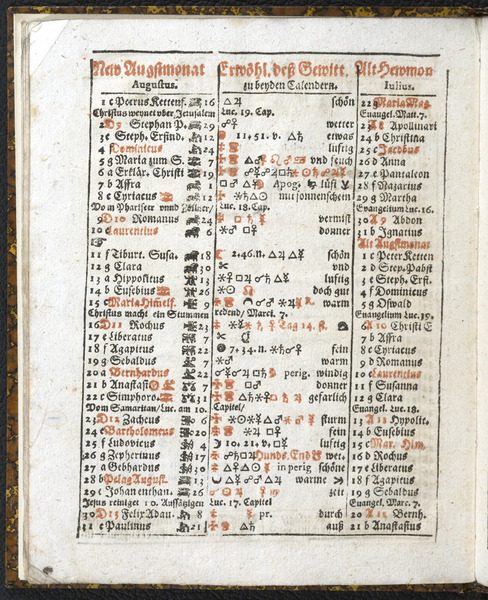 New Augstmonat Erwöhl. deß Gewitt. Alt Hewmon
Augustus. zu beyden Calendern. Iulius.
1 c Petrus Kettenf. 16 schön 22 g Maria Mag.
Christus weynet vber Jerusalem Luc. 19. Cap. Euangel. Matt. 7.
2 D9 Stephan P. 29 wetter 23 A8 Apollinari
3 e Steph. Erfind. 12 11. 51. v. etwas 24 b Christina
4 f Dominicus 24 lufftig 25 c Jacobus
5 g Maria zum S. 7 vnd feuch 26 d Anna
6 a Erklär. Christi 19 27 e Pantaleon
7 b Affra 1 Apog. lüfti 28 f Nazarius
8 c Cyriacus 12 mit sonnenschein 29 g Martha
Vom Phariseer vnnd Zölner/ Luc. 18. Cap. Euangelium Luc. 16.
9 D10 Romanus 24 vermist 30 A9 Abdon
10 e Laurentius 6 donner 31 b Ignatius
Alt Augstmonat
11 f Tiburt. Susa. 18 2. 46. n. schön 1 c Peter Ketten
12 g Clara 30 vnd 2 d Step. Pabst
13 a Hippolitus 13 lufftig 3 e Steph. Erf.
14 b Eusebius 26 doch gut 4 f Dominicus
15 c Maria Himelf. 9 warm 5 g Oswald
Christus macht ein Stummen redend/ Marci. 7. Euangelium Luc. 19.
16 D11 Rochus 23 Tag 14. st. 6 A10 Christi E
17 e Liberatus 7 7 b Affra
18 f Agapitus 22 7. 34. n. fein 8 c Cyriacus
19 g Sebaldus 7 warm 9 d Romanus
20 a Bernhardus 22 perig. windig 10 e Laurentius
21 b Anastasi 7 donner 11 f Susanna
22 c Simphoro. 31 gefarlich 12 g Clara
Vom Samaritan/ Luc. am 10. Capitel/ Euangel. Luc. 18.
23 D12 Zacheus 6 sturm 13 A11 Hypolit.
24 e Bartholomeus 20 fein 14 b Eusebius
25 f Ludovicus 4 10. 21. v. lufftig 15 c Mar. Him.
26 g Zepherinus 17 Hunds. End wet. 16 d Rochus
27 a Gebhardus 30 in perig schöne 17 e Liberatus
28 b Pelag August. 13 warme 18 f Agapitus
29 c Johan enthau. 26 zeit 19 g Sebaldus
Jesus reiniget 10. Aussätzigen Luc. 17. Capitel Euangel. Marc. 7.
30 D13 Felix Adau. 8 pr. durch 20 A12 Bernh.
31 e Paulinus 21 auß 21 b Anastasius